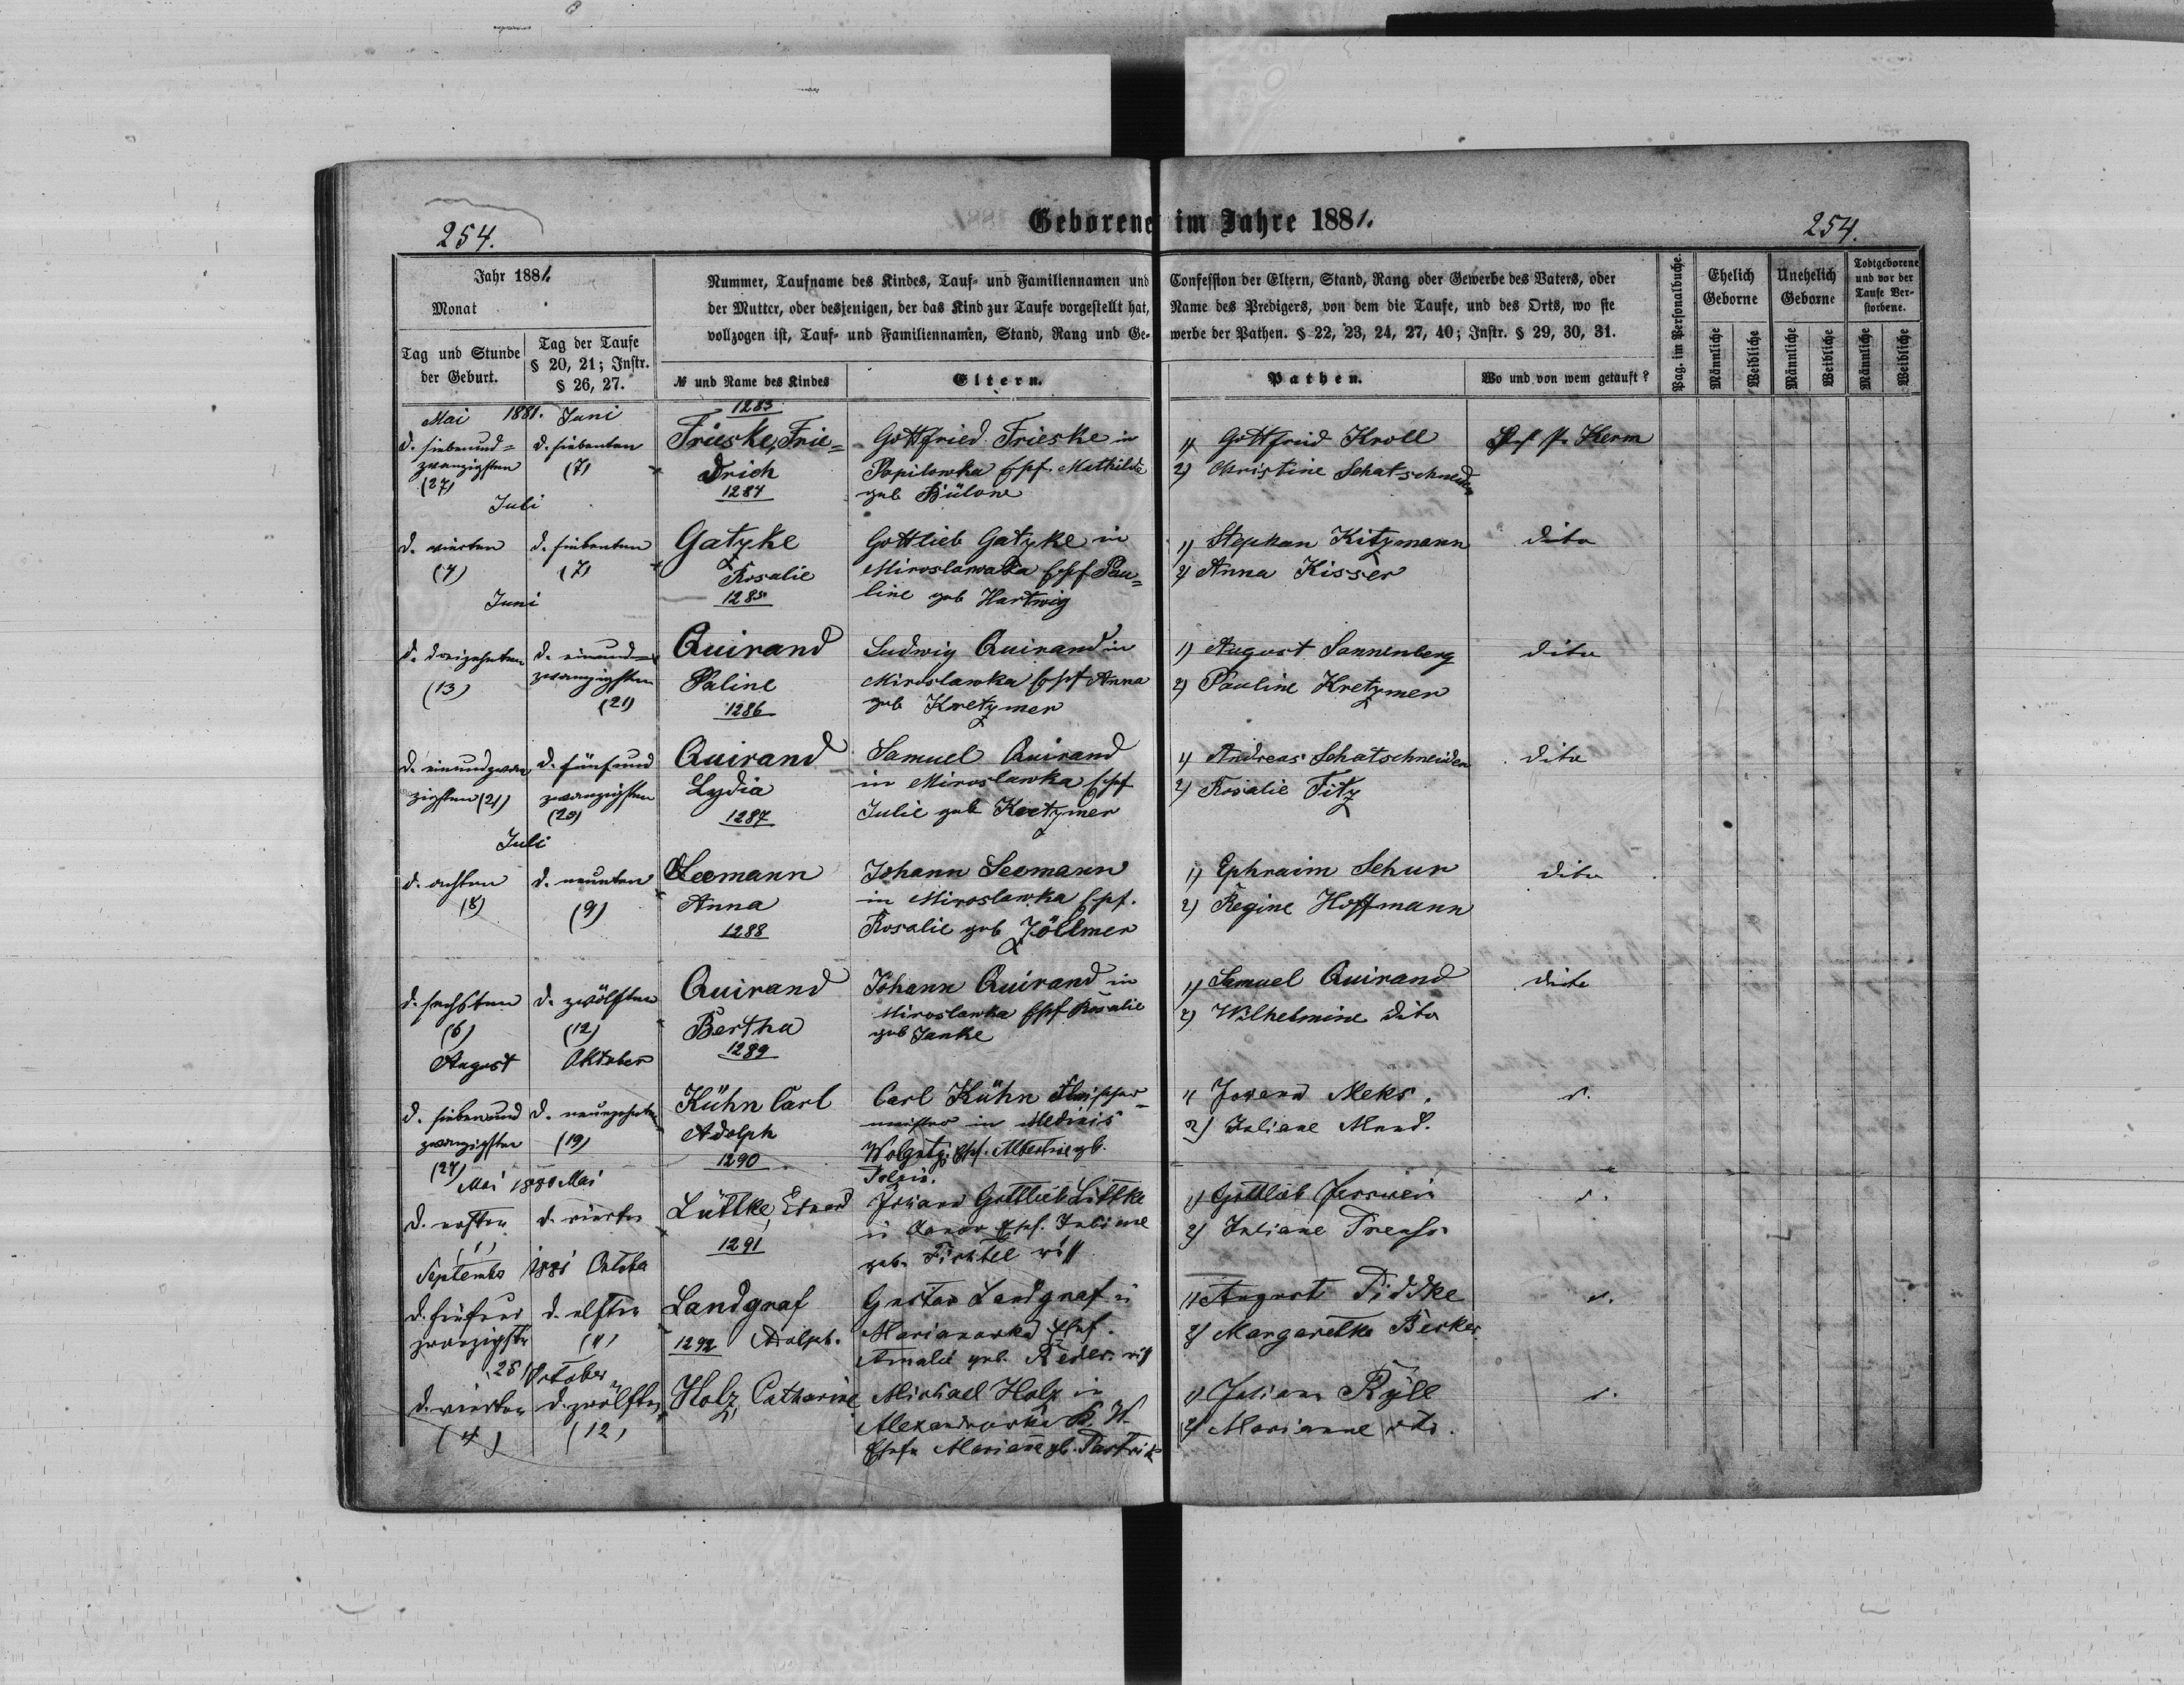 254.
Geborene im Jahre 1881.
254.
Jahr 1881.
Monat
Tag und Stunde der Geburt.
Tag der Taufe § 20, 21; Instr. § 26, 27.
Nummer, Taufname des Kindes, Tauf- und Familiennamen und
der Mutter, oder desjenigen, der das Kind zur Taufe vorgestellt hat,
vollzogen ist, Tauf- und Familiennamen, Stand, Rang und Ge-
№ und Name des Kindes
Eltern.
Confession der Eltern, Stand, Rang oder Gewerbe des Vaters, oder
Name des Predigers, von dem die Taufe, und des Orts, wo sie
werbe der Pathen. § 22, 23, 24, 27, 40; Instr. § 29, 30, 31.
Pathen.
Wo und von wem getauft?
Pag. im Personalbuche.
Ehelich Geborne
Unehelich Geborne
Todtgeborene und vor der Taufe Verstorbene.
Männliche
Weibliche
Männliche
Weibliche
Männliche
Weibliche
Mai 1881. Juni
d. siebenund=
zwanzigsten
(27)
d. siebenten
(7)
1283
Frieske, Frie=
drich
Gottfried Frieske in
Popilowka Ehf. Mathilde
geb
1) Gottfried Kroll
2) Christine Schatschneider
Kerm
Juli
d. vierten
(4)
d. siebenten
(7)
1284
Gatzke
Rosalie
Gottlieb Gatzke in
Miroslawka Ehf Pau=
line geb Hartwig
1) Stephan Kitzmann
2) Anna Kisser
dito
Juni
d. dreizehnten
(13)
d. einund=
zwanzigsten
(21)
1285
Quirand
Paline
Ludwig Quirand in
Miroslawka Ehf Anna
geb Kretzmer
1) August Sannenberg
2) Pauline Kretzmer
dito
d. einundzwan
zigsten (21)
d. fünfund
zwanzigsten
1286
Quirand
Lydia
Samuel Quirand
in Miroslawka Ehf
Julie geb Kretzmer
1) Andreas Schatschneider
2) Rosalie Fitz
dito
Juli
d. achten
(8)
d. neunten
(9)
1287
Seemann
Anna
Johann Seemann
in Miroslawka Ehf.
Rosalie geb Zöllmer
1) Ephraim Schur
2) Regine Hoffmann
dito
d. sechsten
(6)
d. zwölften
(12)
1288
Quirand
Bertha
Johann Quirand in
Miroslawka Ehf Rosalie
geb Janke
1) Samuel Quirand
2) Wilhelmine dito
dito
August Oktober
d. siebenund
zwanzigsten
(27)
d. neunzehnten
(19)
1289
Kühn Carl
Adolph
Carl Kühn
meister in
Ehf. Albertine gb.
1)
2) Juliane
d.
Mai 1880 Mai
d. ersten
(1)
d. vierten
1290
Lüttke,
Johann Gottlieb Littke
in Ehf. Juliane
geb. Fichtel
1) Gottlieb
2) Juliane
d.
September 1881 October
d. fünfund
zwanzigsten
(25)
d. elften
(11)
1291
Landgraf
Adolph.
Gustav Landgraf in
Marianowka Ehf.
Amalie geb. Reder.
1) August Piddke
2) Margarethe Becker
d.
October
d. vierten
(4)
d. zwölften
(12)
1292
Holz, Catharine
Michael Holz in
Alexandrowka K. W.
Ehefr Mariane gb.
1) Ryll
2) Marianne dto.
d.